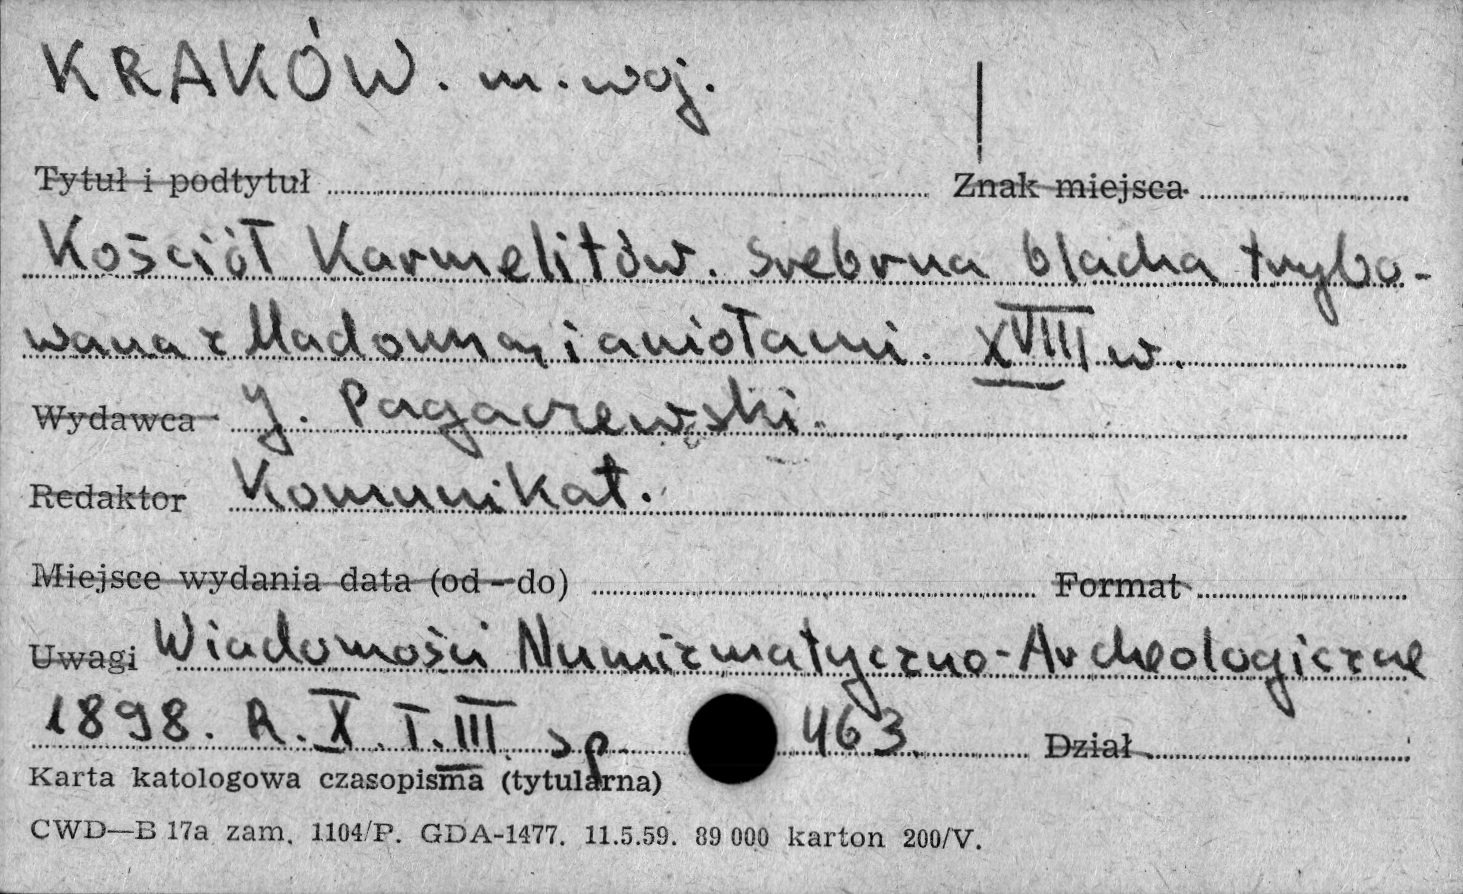 KRAKÓW. m. woj.
Tytuł i podtytuł Znak miejsca
Kościół Karmelitów. Srebrna blacha trybo-
wana z Madonną i aniołami. XVIII w.
Wydawca J. Pagaczewski.
Redaktor Komunikat.
Miejsce wydania data (od – do) Format
Uwagi Wiadomości Numizmatyczno-Archeologiczne
1898. R. X. T. III sp. 463. Dział
Karta katologowa czasopisma (tytularna)
CWD—B 17a zam. 1104/P. GDA-1477. 11.5.59. 89 000 karton 200/V.